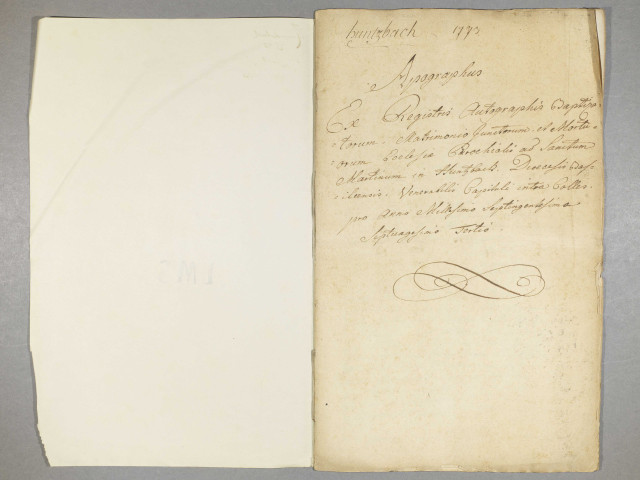 huntzbach 1773
Apographus
Ex Registris Autographis Baptiza-
-torum, Matrimonio Junctorum et Mortu-
-orum Ecclesiæ Parochialis ad Sanctum
Martinum in Huntzbach, Dioecesis Basi-
-leensis, Venerabilis Capituli intra Colles
pro Anno Millesimo Septingentesimo
Septuagesimo Tertio.